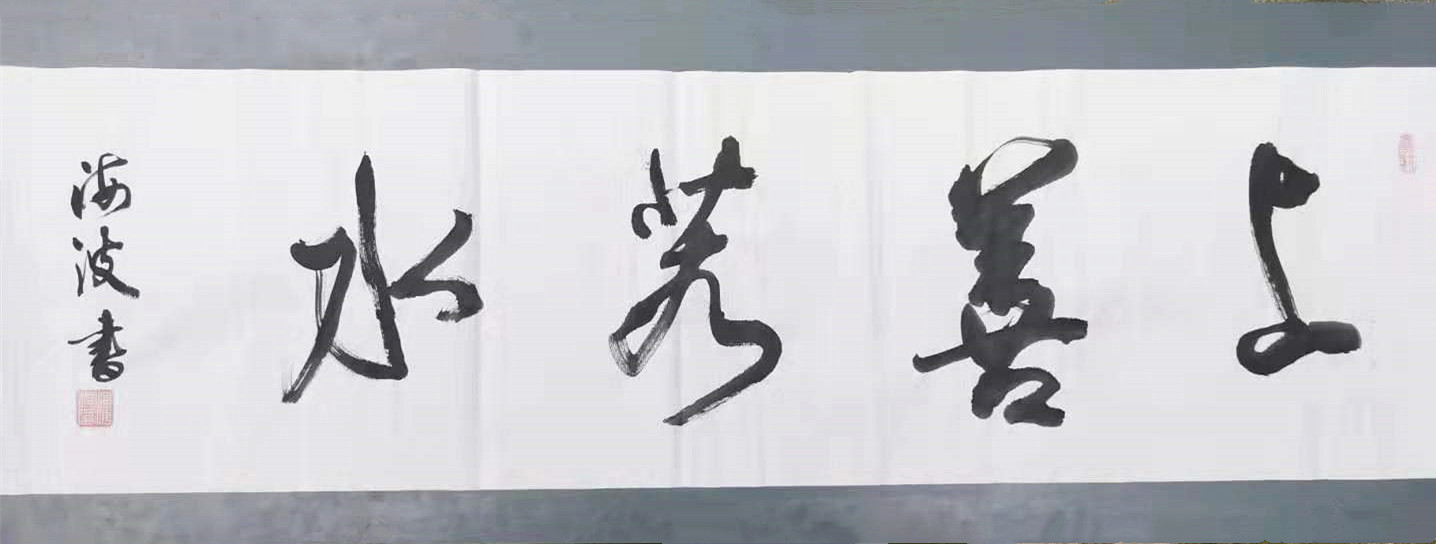 上善若水
海波書